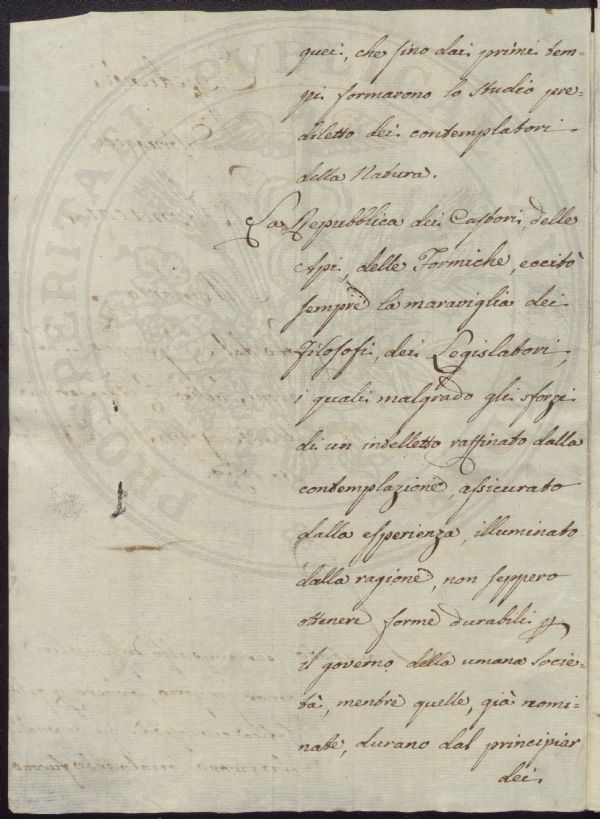 quei, che sino dai primi tem-
pi formarono lo studio pre-
diletto dei contemplatori
della Natura.
La Repubblica dei Castori, delle
Api, delle Formiche, eccitò
sempre la maraviglia dei
Filosofi, dei Legislatori,
i quali malgrado gli sforzi
di un intelletto raffinato dalla
contemplazione, assicurato
dalla esperienza, illuminato
dalla ragione, non seppero
ottenere forme durabili p
il governo della umana Socie-
tà, mentre quelle, già nomi-
nate, durano dal principiar
dei